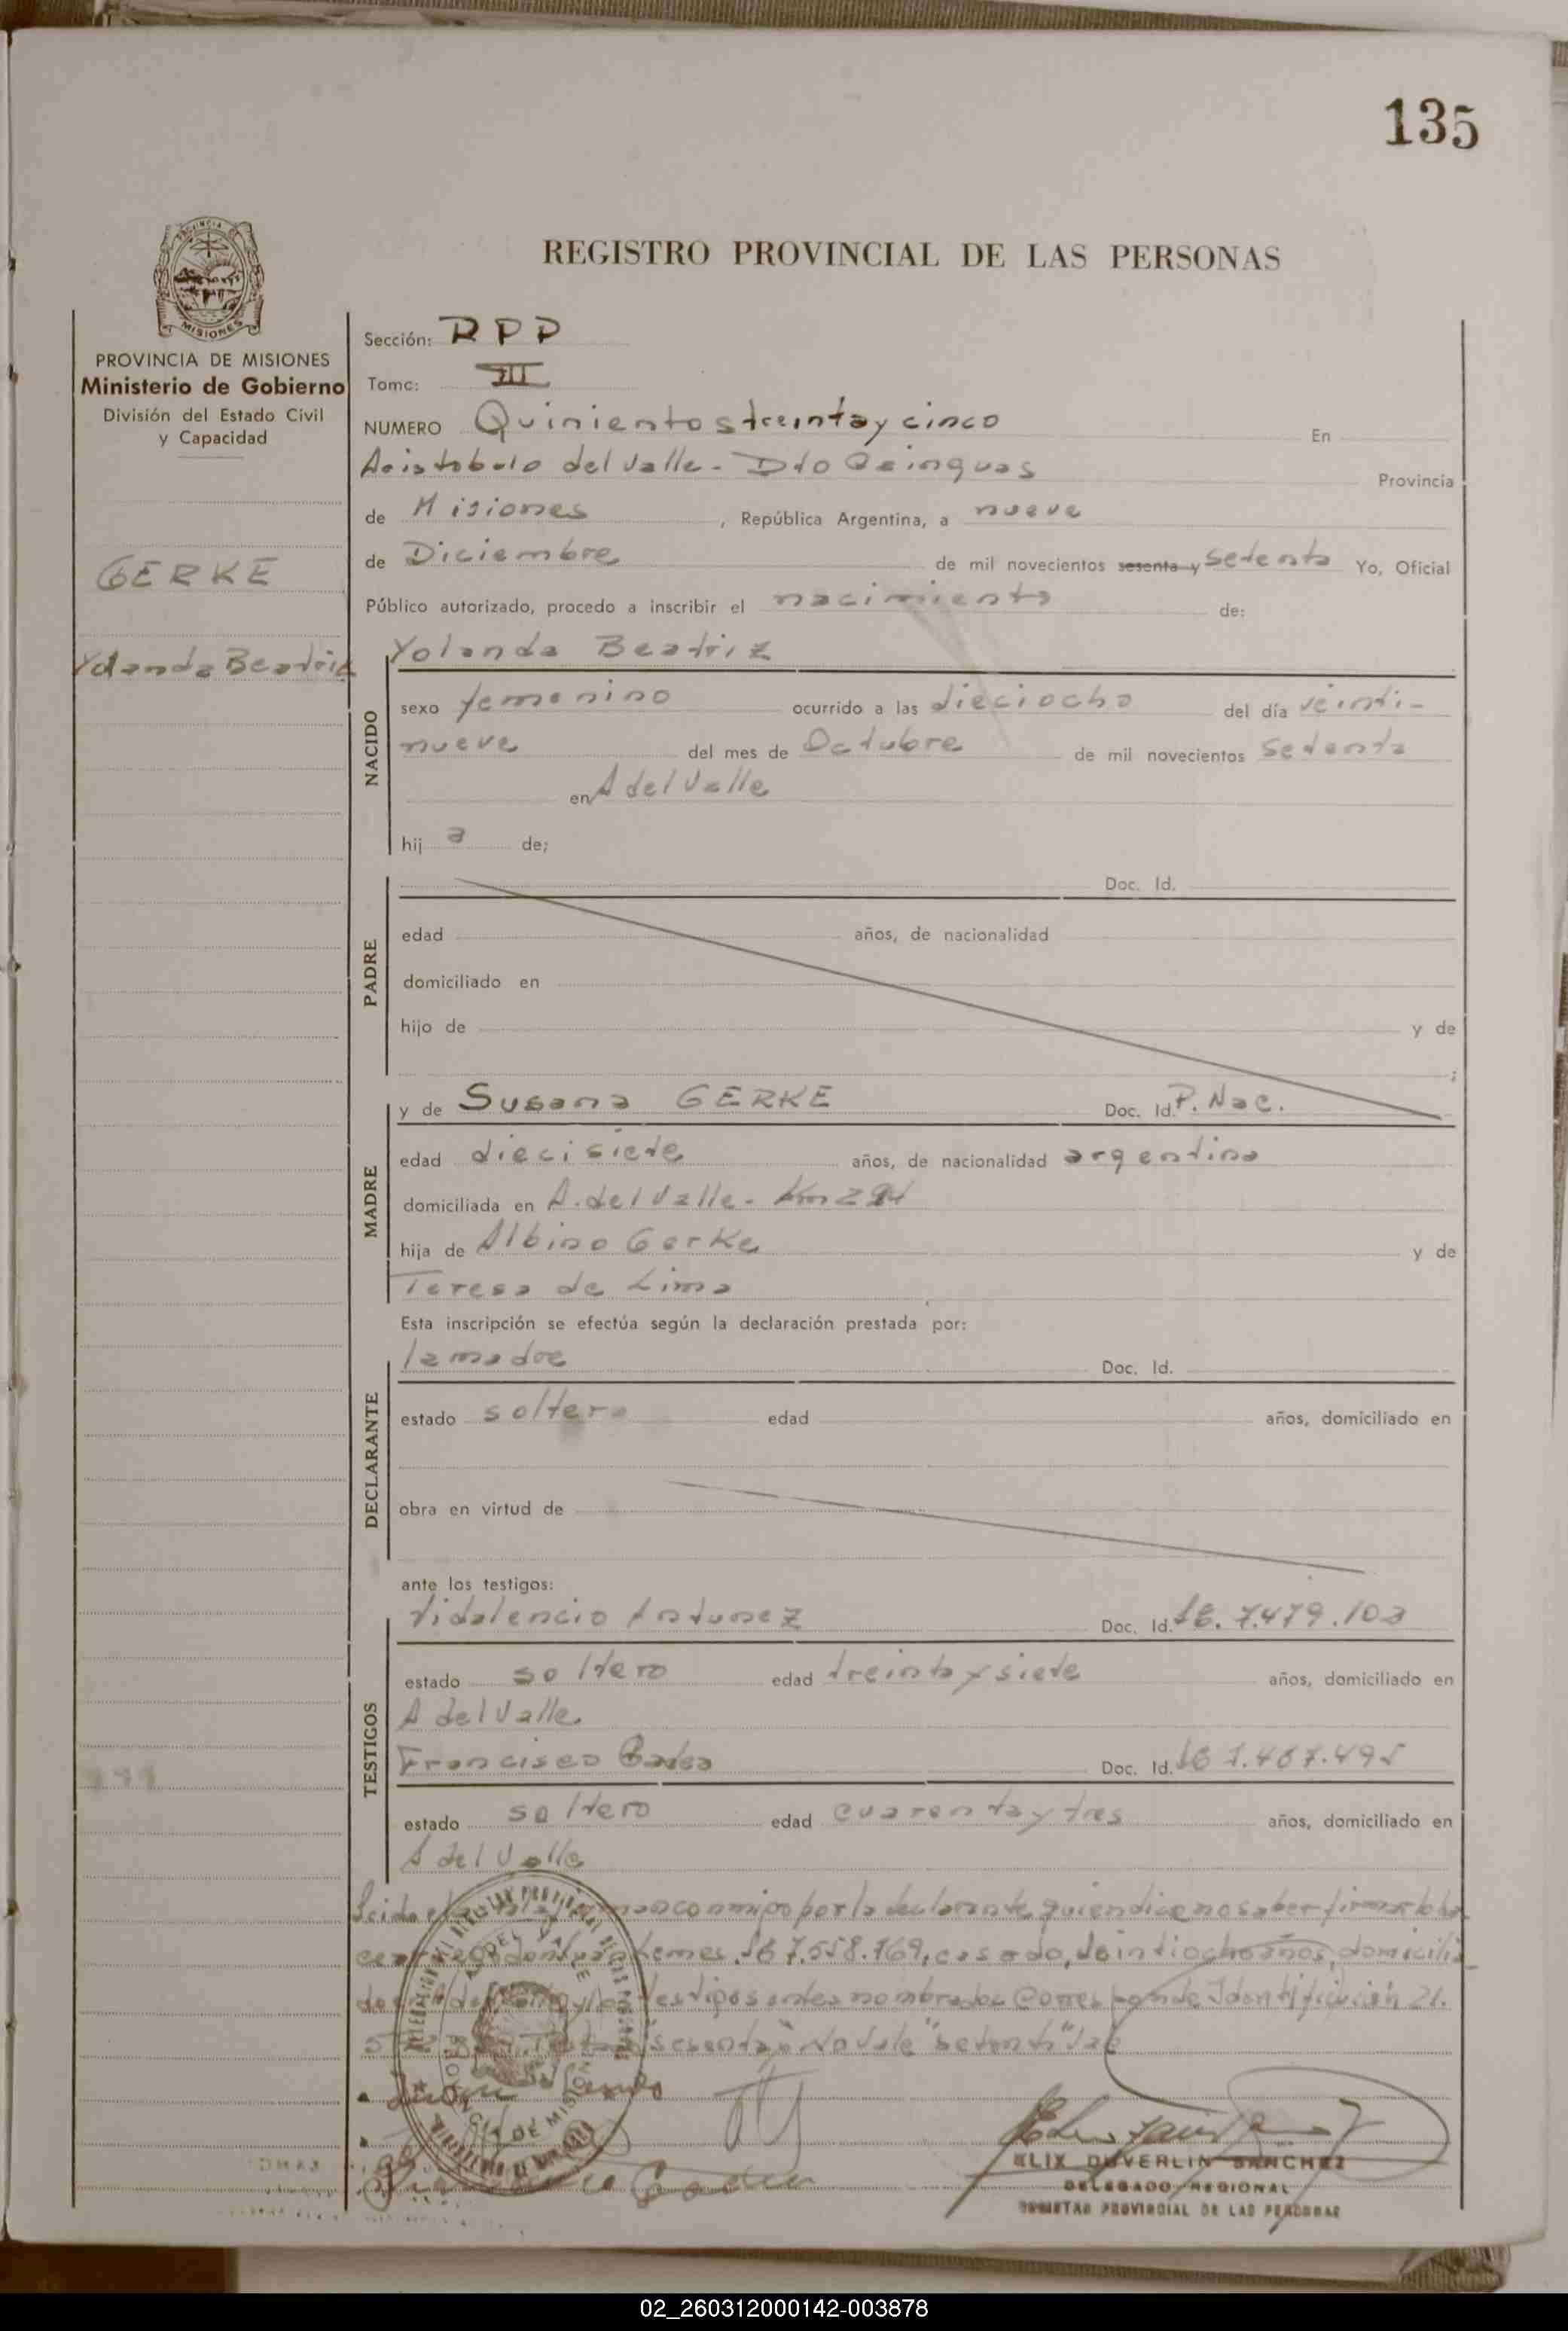 135
PROVINCIA DE MISIONES
Ministerio de Gobierno
División del Estado Civil
y Capacidad
GERKE
Yolanda Beatriz
REGISTRO PROVINCIAL DE LAS PERSONAS
Sección: RPP
Tomo: III
NUMERO Quinientos treinta y cinco En
Aristobulo del Valle - Dto Cainguas Provincia
de Misiones, República Argentina, a nueve
de Diciembre de mil novecientos sesenta y setenta Yo, Oficial
Público autorizado, procedo a inscribir el nacimiento de:
NACIDO
Yolanda Beatriz
sexo femenino ocurrido a las dieciocho del día veinti-
nueve del mes de Octubre de mil novecientos setenta
en A del Valle
hij a de;
PADRE
Doc. Id.
edad años, de nacionalidad
domiciliado en
hijo de y de
;
MADRE
y de Susana GERKE Doc. Id. P. Nac.
edad diecisiete años, de nacionalidad argentina
domiciliada en A. del Valle - Km
hija de Albino Gerke y de
Teresa de Lima
Esta inscripción se efectúa según la declaración prestada por:
DECLARANTE
la madre Doc. Id.
estado soltera edad años, domiciliado en
obra en virtud de
ante los testigos:
TESTIGOS
Vidalencio Antunez Doc. Id. 7.479.103
estado soltero edad treinta y siete años, domiciliado en
A del Valle
Francisco Doc. Id.
estado soltero edad cuarenta y tres años, domiciliado en
A del Valle
conmigo por la declarante quien dice no saber firmar
7.558.769, casado, veintiocho años, domicilia
testigos antes nombrados Corresponde Identificación 21.
sesenta" No vale "setenta" Vale
DUVERLIN SANCHEZ
DELEGADO REGIONAL
REGISTRO PROVINCIAL DE LAS PERSONAS
02_260312000142-003878